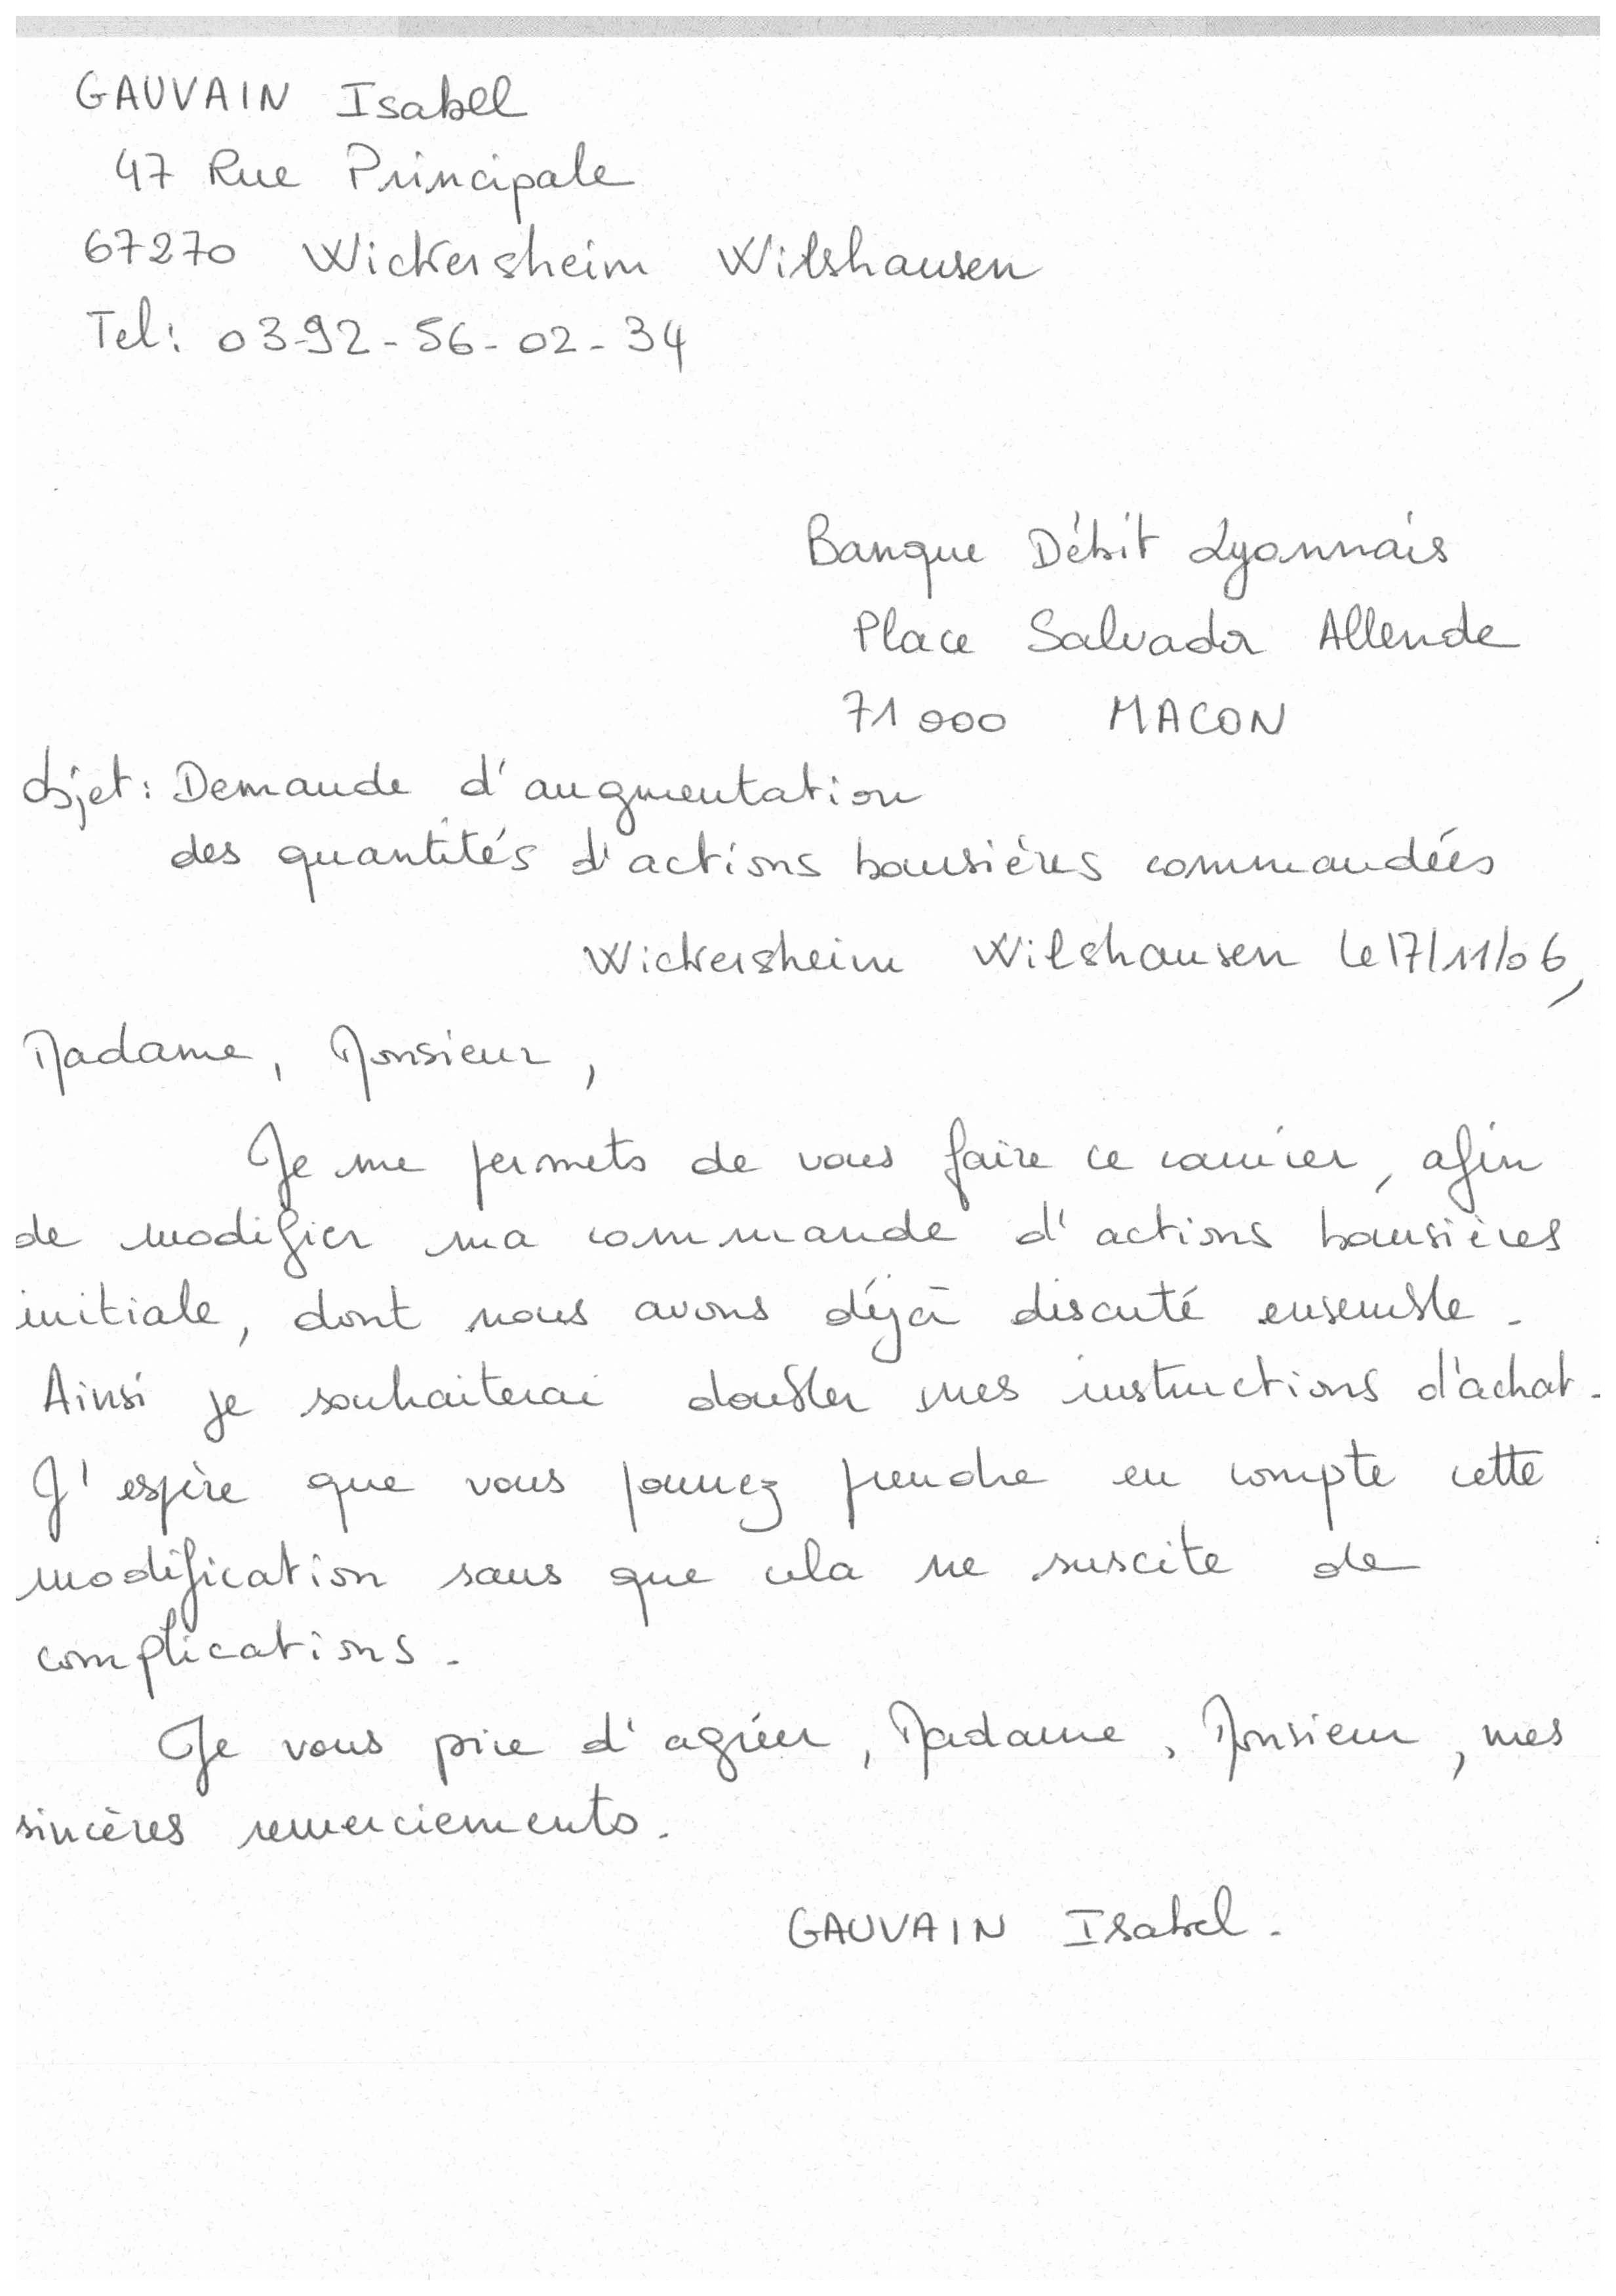 GAUVAIN Isabel
47 Rue Principale
67270 Wickersheim Wilshausen
Tel: 03-92-56-02-34
Banque Débit Lyonnais
Place Salvador Allende
71000 MACON
Objet: Demande d'augmentation
des quantités d'actions boursières commandées
Wickersheim Wilshausen le 17/11/06,
Madame, Monsieur,
Je me permets de vous faire ce courrier, afin
de modifier ma commande d'actions boursières
initiale, dont nous avons déjà discuté ensemble.
Ainsi je souhaiterai doubler mes instructions d'achat.
J'espère que vous pourrez prendre en compte cette
modification sans que cela ne suscite de
complications.
Je vous prie d'agréer, Madame, Monsieur, mes
sincères remerciements.
GAUVAIN Isabel.